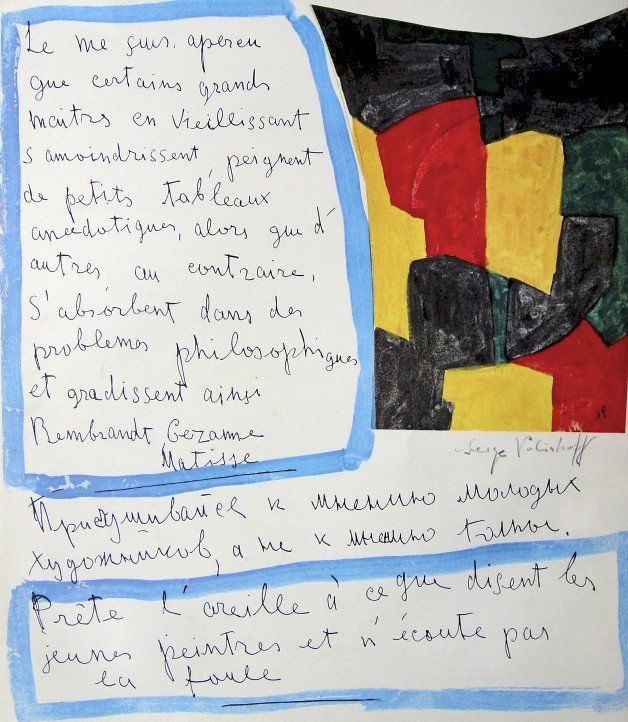 Le me suis aperçu
que certains grands
maitres en vieillissant
s'amoindrissent, peignent
de petits tableaux
anecdotiques, alors que d'
autres au contraire,
S'absorbent dans des
problemes philosophiques
et gradissent ainsi
Rembrandt Cezanne
Matisse
Serge Poliakoff
Прислушивайся к мнению молодых
художников, а не к мнению толпы.
Prête l'oreille à ce que disent les
jeunes peintres et n'écoute pas
la foule